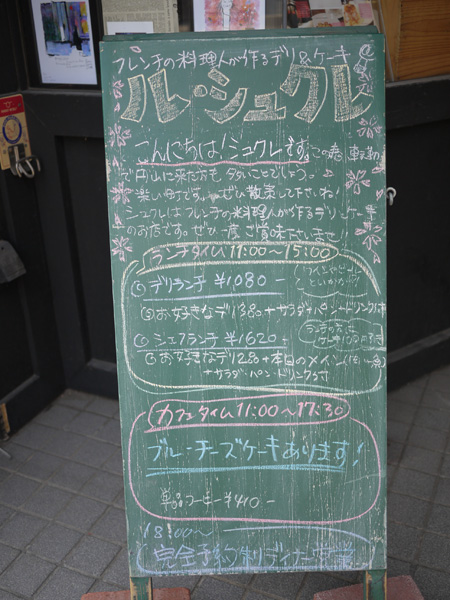 フレンチの料理人が作るデリ&ケーキ
ル・シュクレ
こんにちは!シュクレです。この春、転勤
で円山に来た方も多いことでしょう。
楽しい町です。ぜひ散策して下さいね!
シュクレはフレンチの料理人が作るデリ
のお店です。ぜひ一度ご賞味下さいませ
ランチタイム 11:00〜15:00
デリランチ ¥1080-
お好きなデリ3品+サラダ+パン・ドリンク付
シェフランチ ¥1620-
ランチのお供
お好きなデリ2品+本日のメイン(肉or魚)
+サラダ・パン・ドリンク付
カフェタイム 11:00〜17:30
ブルーチーズケーキあります!
単品コーヒー¥410-
18:00〜
完全予約制ディナー営業